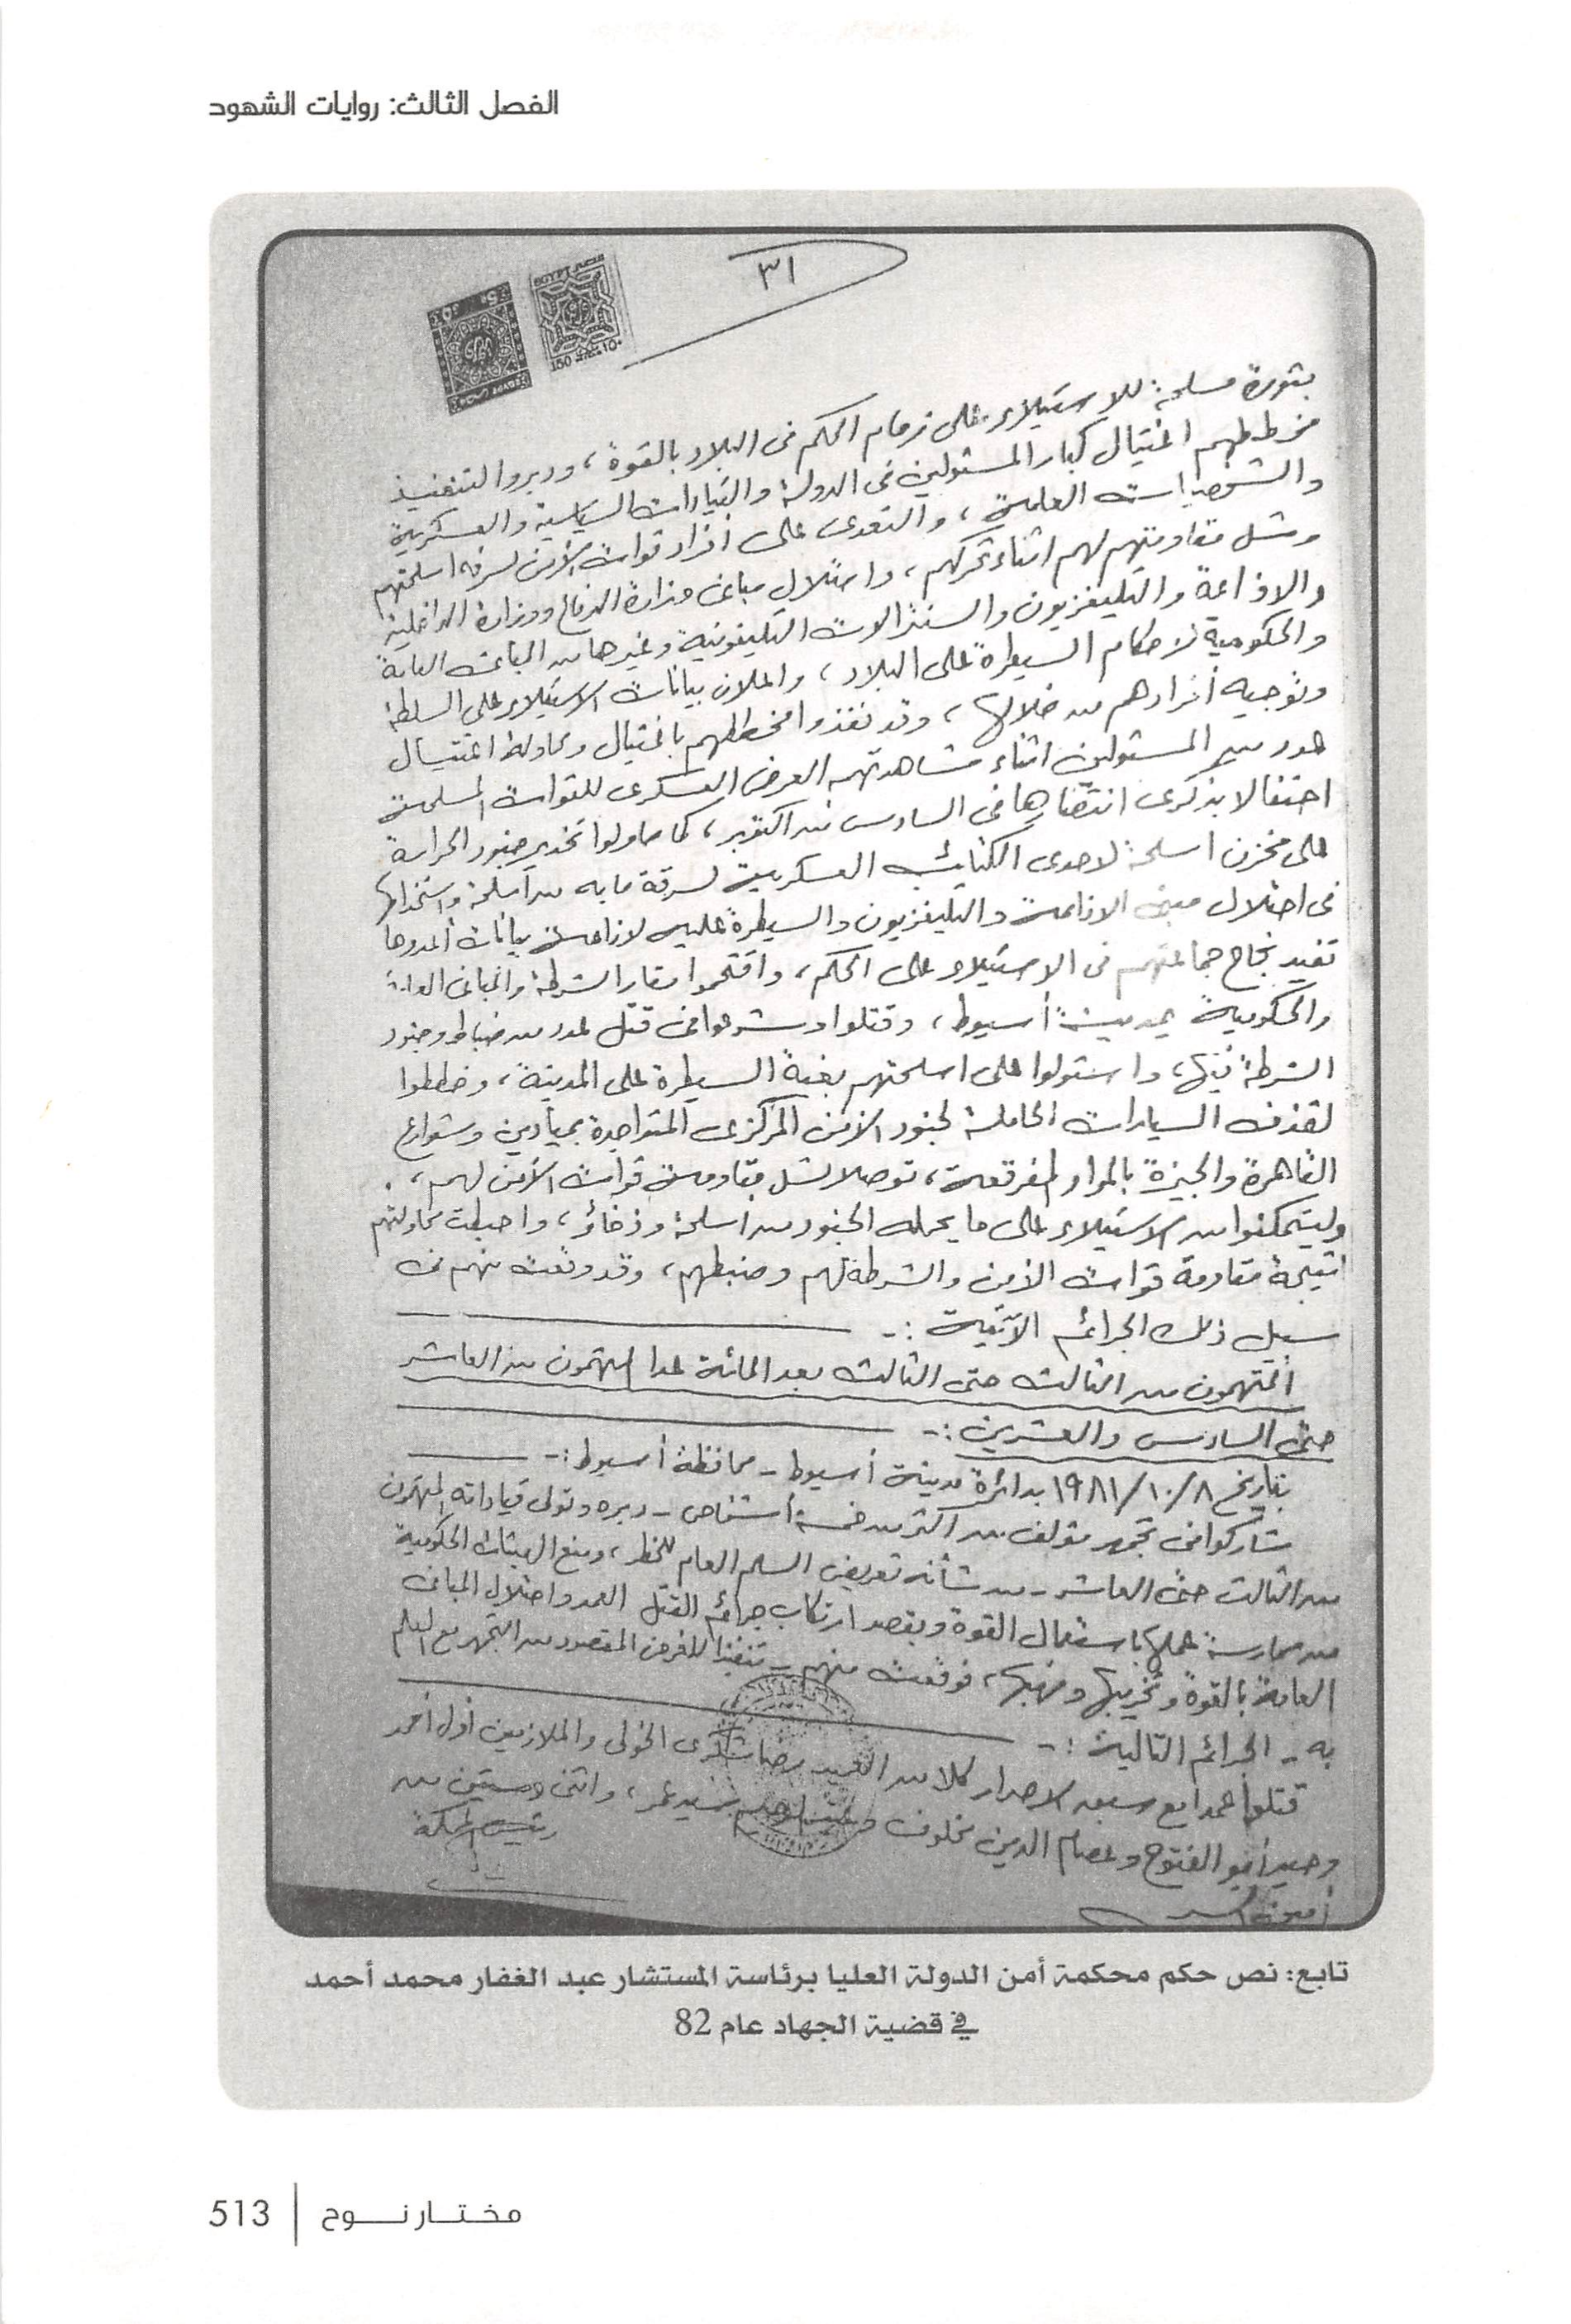 الفصل الثالث: روايات الشهود
٣١
بثورة مسلحة للاستيلاء على زمام الحكم فى البلاد بالقوة، ودبروا لتنفيذ
مخططهم اغتيال كبار المسئولين فى الدولة والقيادات السياسية والعسكرية
والشخصيات العامة، والتعدى على أفراد قوات الأمن لسرقة اسلحتهم
وشل مقاومتهم لهم اثناء تحركهم، واحتلال مبانى وزارة الدفاع ووزارة الداخلية
والاذاعة والتليفزيون والسنترالات التليفونية وغيرها من المبانى العامة
والحكومية لاحكام السيطرة على البلاد، واعلان بيانات الاستيلاء على السلطة
وتوجيه أفرادهم من خلالها، وقد نفذوا مخططهم باغتيال ومحاولة اغتيال
عدد من المسئولين اثناء مشاهدتهم العرض العسكرى للقوات المسلحة
احتفالا بذكرى انتصارها فى السادس من اكتوبر، كما حاولوا تخدير جنود الحراسة
على مخزن اسلحة لاحدى الكتائب العسكرية لسرقة ما به من أسلحة واستخدامها
فى احتلال مبنى الاذاعة والتليفزيون والسيطرة عليه لاذاعة بيانات أعدوها
تفيد نجاح جماعتهم فى الاستيلاء على الحكم، واقتحموا مقار الشرطة والمبانى العامة
والحكومية بمدينة أسيوط، وقتلوا وشرعوا فى قتل عدد من ضباط وجنود
الشرطة فيها، واستولوا على اسلحتهم بغية السيطرة على المدينة، وخططوا
لقذف السيارات الحاملة لجنود الأمن المركزى المتواجدة بميادين وشوارع
القاهرة والجيزة بالمواد المفرقعة، توصلا لشل مقاومة قوات الأمن لهم،
وليتمكنوا من الاستيلاء على ما يحمله الجنود من اسلحة وذخائر، واحبطت محاولتهم
نتيجة مقاومة قوات الأمن والشرطة لهم وضبطهم، وقد وقعت منهم فى
سبيل ذلك الجرائم الآتية :-
المتهمون من الثالث حتى الثالث بعد المائة عدا المتهمون من العاشر
حتى السادس والعشرين :-
بتاريخ ١٩٨١/١٠/٨ بدائرة مدينة أسيوط - محافظة أسيوط :-
شاركوا فى تجمهر مؤلف من اكثر من خمسة أشخاص - دبره وتولى قياداته المتهمون
من الثالث حتى العاشر - من شأنه تعريض السلم العام للخطر، ومنع الهيئات الحكومية
من ممارسة عملها باستعمال القوة وبقصد ارتكاب جرائم القتل العمد واحتلال المبانى
العامة بالقوة وتخريبها ونهبها، فوقعت منهم - تنفيذا للغرض المقصود من التجمهر مع العلم
به - الجرائم التالية :-
قتلوا عمدا مع سبق الاصرار كلا من العميد رضا شكرى الخولى والملازمين أول أحمد
وحيد أبو الفتوح وعصام الدين مخلوف و سيد عمر، واثنى وستين من
رئيس المحكمة
أمين السر
تابع: نص حكم محكمة أمن الدولة العليا برئاسة المستشار عبد الغفار محمد أحمد
في قضية الجهاد عام 82
مختار نوح | 513